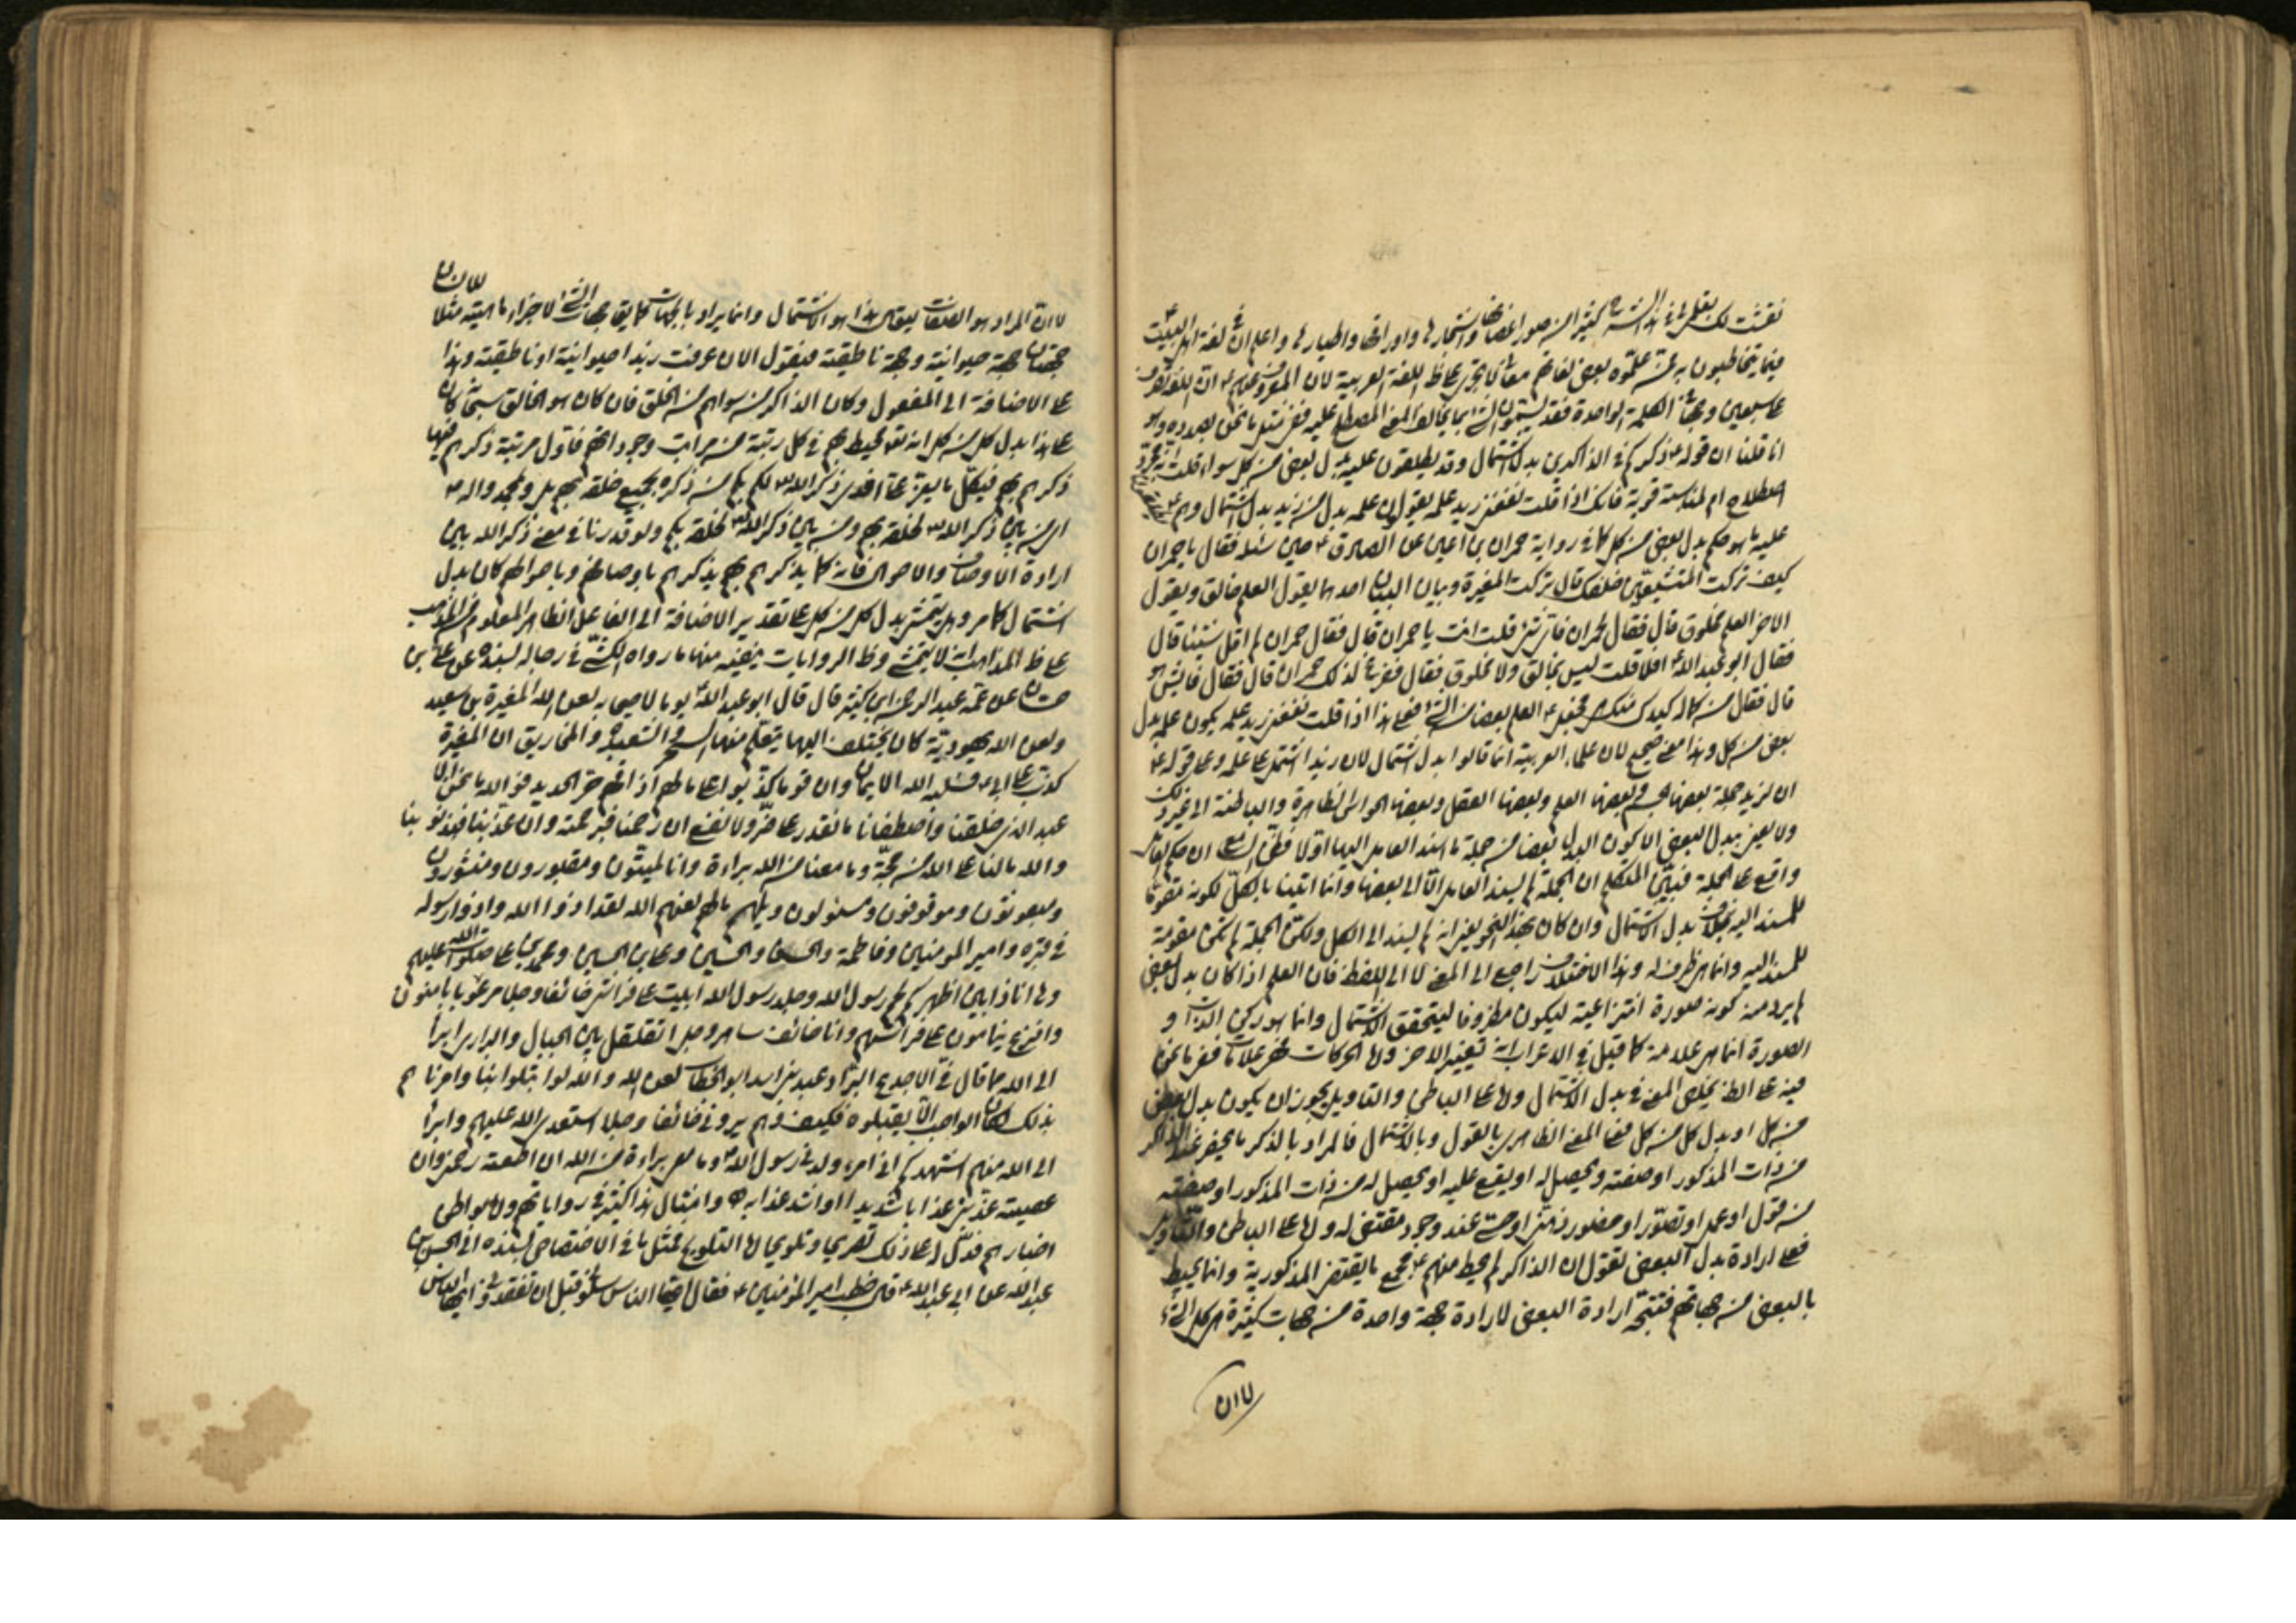 نفثت لك بقلمي في هذه الشجرة كثيرا من صور اغصانها واشجارها واوراقها واطيارها واعلم ان في لغة اهل البيت ع
فيما يتخاطبون به عن علموه بعض لغاتهم معاني تجري على ظاهر اللغة العربية لان المعروف عنهم ع ان اللفظ
على سبعين وجها الكلمة الواحدة فقد يسمون الشيء بما يخالف المعنى المصطلح عليه فنمثل ما نحن بصدده وهو
انا قلنا ان قوله ع ذكركم في الذاكرين بدل اشتمال وقد يطلقون عليه بدل بعض من كل سواء قلت
اصطلاح ام لمناسبة قريبة فانك اذا قلت نفعني زيد علمه يقولون علمه بدل من زيد بدل اشتمال وهم ع
عليه ما هو حكم بدل بعض من كل كما في رواية حمران بن اعين عن الصادق ع حين سئله فقال يا حمران
كيف تركت المتشيعين خلفك قال تركت المغيرة وبيان البيان احدهما يقول العلم خالق ويقول
الاخر العلم مخلوق قال فقال لحمران فاي شيء قلت انت يا حمران قال فقال حمران لم اقل شيئا قال
فقال ابو عبد الله ع افلا قلت ليس بخالق ولا مخلوق فقال ففزع لذلك حمران قال فقال فايش هو
قال فقال من كماله كيدك منك فجعل ع العلم بعضا من الشيء فعلى هذا اذا قلت نفعني زيد علمه يكون علمه بدل
بعض من كل وهذا معنى صحيح لان علماء العربية انما قالوا بدل اشتمال لان زيدا اشتمل على علمه وعلى قوله ع
ان لزيد جملة بعضها الجسم وبعضها العلم وبعضها العقل وبعضها الحواس الظاهرة والباطنة الى غير ذلك
ولا يعنى ببدل البعض الا كون البدل بعضا من جملة ما اسند العامل اليها اولا فظن السامع ان حكم العامل
واقع على الجملة فبين المتكلم ان الجملة لم يسند العامل الا الى بعضها وانما اتينا بالكل لكونه مقوما
للمسند اليه بخلاف بدل الاشتمال وان كان بهذا النحو يعني انه لم يسند الى الكل ولكن الجملة لم تكن مقومة
للمسند اليه وانما هي ظرف له وهذا الاختلاف راجع الى المعنى لا الى اللفظ فان العلم اذا كان بدل بعض
لم يرد منه كونه صورة انتزاعية ليكون مظروفا ليتحقق الاشتمال وانما هو ركن الذات و
الصورة انما هي علامة كما قيل في الاعراب انه تغيير الاخر واما الحركات فهي علامات فنفي ما نحن
فيه على الظاهر يخص المعنى في بدل الاشتمال واما على الباطن والتاويل يجوز ان يكون بدل بعض
من كل او بدل كل من كل فعلى المعنى الظاهري بالقول وبالاشتمال فالمراد بالذكر ما يحضر عند الذاكر
من ذات المذكور او صفته ويحصل له او يقع عليه او يحصل له من ذات المذكور او صفته
من قول او عمل او تصور او حضور ذهني او حسي عند وجود مقتضى له واما على الباطن والتاويل
فعلى ارادة بدل البعض نقول ان الذاكر لم يحط منهم ع بجميع ما يقتضي المذكورية وانما يحيط
بالبعض من جهاتهم فتتجه ارادة البعض لارادة جهة واحدة من جهات كثيرة هي كل الشيء
لا ان
لا ان
لا ان المراد هو الصفات ليقال هذا هو الاشتمال وانما يراد بالجهات كما يقال جهات الشيء لاجزاء ماهيته مثلا
جهتان جهة حيوانية وجهة ناطقية فيقول الان عرفت زيدا حيوانيته او ناطقيته وهذا
على الاضافة الى المفعول وكان الذاكر من سواهم من الخلق فان كان هو الخالق سبحانه كان
على هذا بدل كل من كل انه تعالى محيط بهم في كل رتبة من مراتب وجوداتهم فاول مرتبة ذكرهم فيها
ذكرهم بهم فبكل ما يعز على افدي ذكر الله لكم بكم من ذكره بجميع خلقه بهم بل وبمحمد واله ص
اين من بين ذكر الله لخلقه بهم ومن بين ذكر الله لخلقه بكم ولو قدرنا في معنى ذكر الله بين
ارادة الاوصاف والاحوال فانه كما يذكرهم بهم يذكرهم باوصافهم وباحوالهم كان بدل
اشتمال كما مر وهل يتمشى بدل كل من كل على تقدير الاضافة الى الفاعل الظاهر المعلوم من المذهب
على ظاهر المذاهب انه لا يتمشى وظاهر الروايات ينفيه منها ما رواه الكشي في رجاله بسنده عن علي بن
حسان عن عمه عبد الرحمن ابن كثير قال قال ابو عبد الله ع يوما لاصحابه لعن الله المغيرة بن سعيد
ولعن الله يهودية كان يختلف اليها يتعلم منها السحر والشعبذة والمخاريق ان المغيرة
كذب على ابي ع فسلبه الله الايمان وان قوما كذبوا علي ما لهم اذاقهم حر الحديد فو الله ما نحن الا
عبيد الذي خلقنا واصطفانا ما نقدر على ضر ولا نفع ان رحمنا فبرحمته وان عذبنا فبذنوبنا
والله ما لنا على الله من حجة وما معنا من الله براءة وانا لميتون ومقبورون ومنشورون
ومبعوثون وموقوفون ومسئولون ويلهم ما لهم لعنهم الله لقد اذوا الله واذوا رسوله
في قبره وامير المؤمنين وفاطمة والحسن والحسين وعلي بن الحسين ومحمد بن علي صلوات الله عليهم
وها انا ذا بين اظهركم لحم رسول الله وجلد رسول الله ابيت على فراشي خائفا وجلا مرعوبا يامنون
وافزع ينامون على فراشهم وانا خائف ساهر وجل اتقلقل بين الجبال والبراري ابرأ
الى الله مما قال في الاجدع البراد عبد بني اسد ابو الخطاب لعنه الله والله لو ابتلوا بنا وامرناهم
بذلك لكان الواجب الا يقبلوه فكيف وهم يروني خائفا وجلا استعدي الله عليهم وابرأ
الى الله منهم اشهدكم اني امرء ولدني رسول الله وما معي براءة من الله ان اطعته رحمني وان
عصيته عذبني عذابا شديدا او اشد عذابه وامثال هذا كثير في رواياتهم واما بواطن
اخبارهم فتدل على ذلك تصريحا وتلويحا اما التلويح فمثل ما في الاختصاص بسنده الى الحسن بن
عبد الله عن ابي عبد الله ع قال خطب امير المؤمنين ع فقال ايها الناس سلوني قبل ان تفقدوني ايها الناس